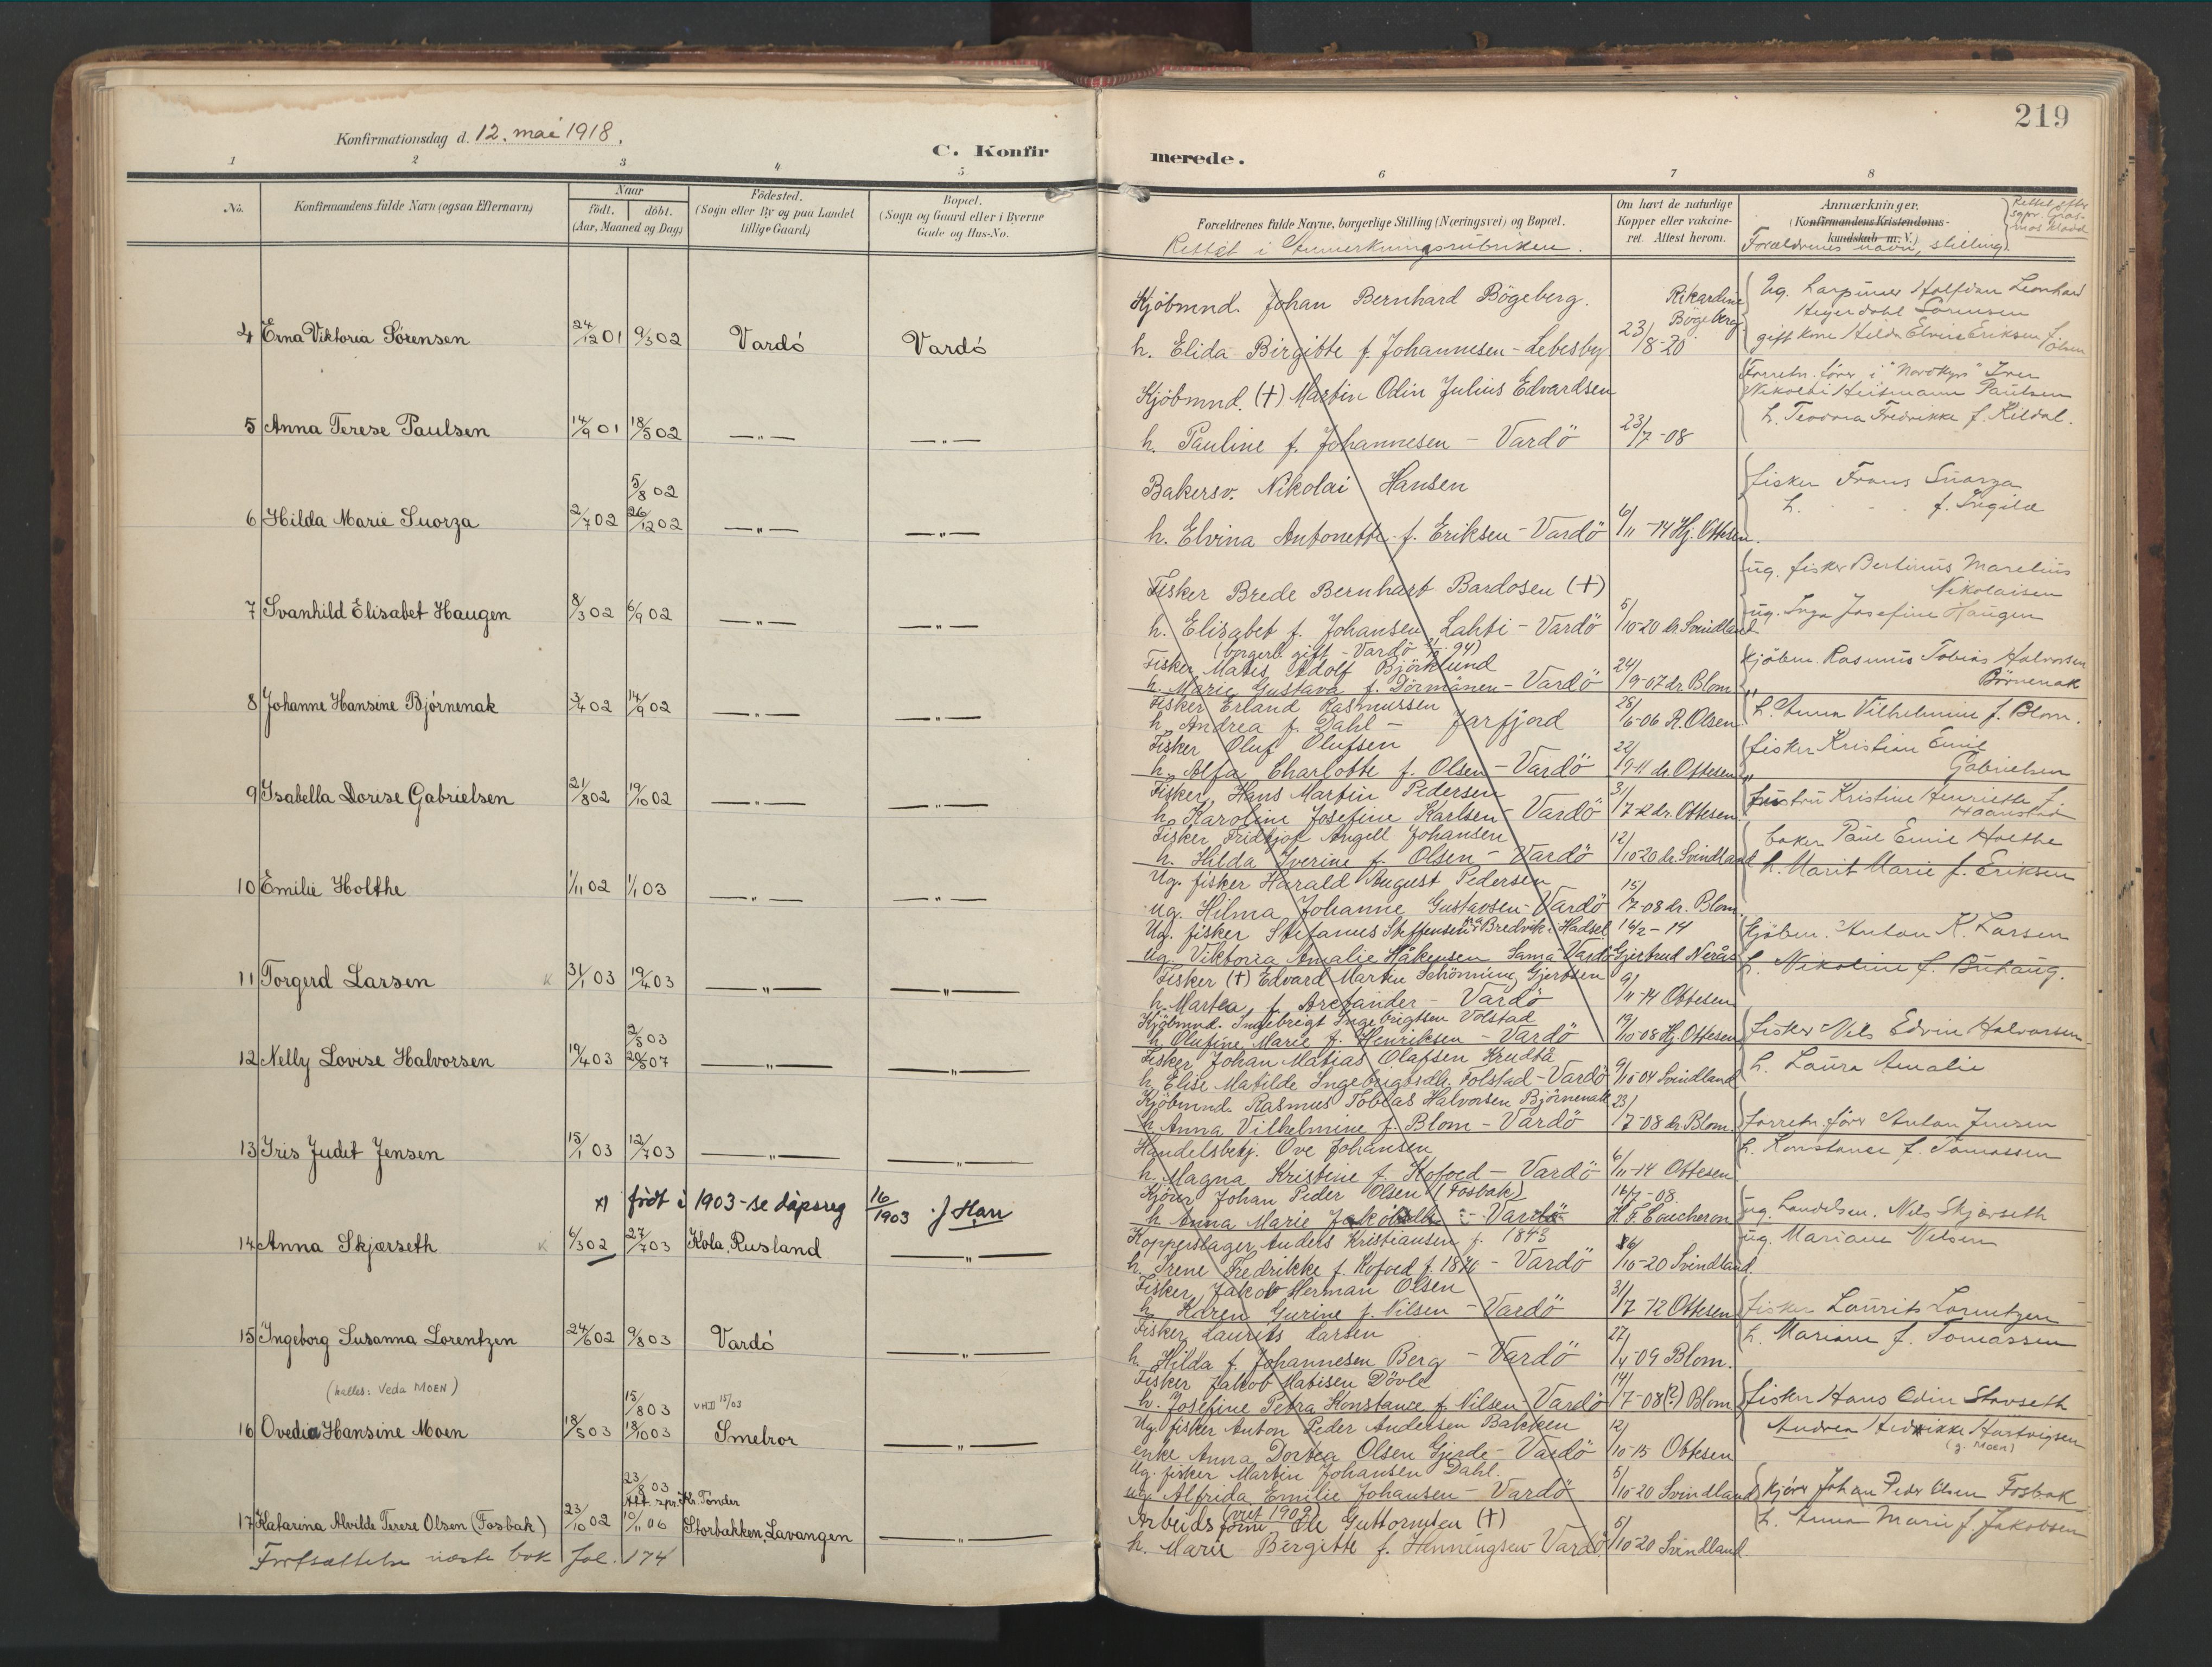 219
Konfirmationsdag d. 12. mai 1918.
C. Konfir
merede.
1 2 3 4 5
6 7 8
No.
Konfirmandens fulde Navn (ogsaa Efternavn)
Naar
födt. döbt.
(Aar, Maaned og Dag)
Födested.
(Sogn eller By og paa Landet
tillige Gaard)
Bopæl.
(Sogn og Gaard eller i Byerne
Gade og Hus-No.
Forældrenes fulde Navne, borgerlige Stilling (Næringsvei) og Bopæl.
Rettet i Anmerkningsrubriken.
Om havt de naturlige
Kopper eller vakcine-
ret. Attest herom.
Anmærkninger.
(Konfirmandens Kristendoms-
kundskab m. V.)
Forældrenes navn, stilling.
4 Erna Viktoria Sörensen 24/12 01 9/3 02 Vardö Vardö
5 Anna Terese Paulsen 14/9 01 18/5 02 —„— —„—
5/8 02
6 Hilda Marie Suorza 2/7 02 26/12 02 —„— —„—
7 Svanhild Elisabet Haugen 8/3 02 6/9 02 —„— —„—
8 Johanne Hansine Björnenak 3/4 02 14/9 02 —„— —„—
9 Isabella Dorise Gabrielsen 21/8 02 19/10 02 —„— —„—
10 Emilie Holthe 1/11 02 1/1 03 —„— —„—
11 Torgerd Larsen 31/1 03 19/4 03 —„— —„—
2/5 03
12 Nelly Lovise Halvorsen 19/4 03 20/5 07 —„— —„—
13 Iris Judit Jensen 15/1 03 12/7 03 —„— —„—
x) födt i 1903 - se dåpsreg 16/1903
14 Anna Skjærseth 6/3 02 27/7 03 Kola, Rusland —„—
15 Ingeborg Susanna Lorentzen 24/6 02 9/8 03 Vardö —„—
(kalles: Veda MOEN)
15/8 03
16 Ovedia Hansine Moen 18/5 03 18/10 03 Smelror —„—
23/8 03
Att. spr. Kr. Tönder
17 Katarina Alvilde Terese Olsen (Fosbak) 23/10 02 10/11 06 Storbakken, Lavangen —„—
Fortsættelse næste bok fol. 174
Kjöbmnd. Johan Bernhard Bögeberg. Rikardine Bögeberg
h. Elida Birgitte f. Johannesen - Lebesby 23/8-20
Kjöbmnd. (+) Martin Odin Julius Edvardsen
h. Pauline f. Johannesen - Vardö 23/7-08
Bakersv. Nikolai Hansen
h. Elvina Antonette f. Eriksen - Vardö 6/11-14 Hj. Ottesen
Fisker Brede Bernhart Bardosen (+)
h. Elisabet f. Johansen Lahti - Vardö 5/10-20 dr Svindland
Fisker Matis Adolf Björklund
h. Marie Gustava f. Dörmänen - Vardö 24/9-07 dr. Blom
Fisker Erland Rasmussen
h. Andrea f. Dahl - Jarfjord 25/6-06 A. Olsen
Fisker Oluf Olufsen
h. Alfa Charlotte f. Olsen - Vardö 22/9-11 dr. Ottesen
Fisker Hans Martin Pedersen
h. Karoline Josefine Karlsen - Vardö 31/7-12 dr. Ottesen
Fisker Fridtjof Angell Johansen
h. Hilda Iverine f. Olsen - Vardö 12/10-20 dr. Svindland
Ug. fisker Harald August Pedersen
ug. Hilma Johanne Gustavsen - Vardö 15/7-08 dr. Blom
Ug. fisker Stefanus Steffensen Bredvik i Hadsel 16/2-14
ug. Viktoria Amalie Håkensen Sama Vardö Gjertrud Nerås
Fisker (+) Edvard Martin Schönning Gjertsen
h. Martea f. Arctander - Vardö 9/11-14 Ottesen
Kjöbmnd. Ingebrigt Ingebrigtsen Volstad
h. Olufine Marie f. Henriksen - Vardö 19/10-08 Hj. Ottesen
Fisker Johan Matias Olafsen Krudtå
h. Elise Matilde Ingebrigtsdtr. Folstad - Vardö 9/10-04 Svindland
Kjöbmnd. Rasmus Tobias Halvorsen Björnenak
h. Anna Vilhelmine f. Blom - Vardö 23/7-08 dr. Blom
Handelsbetj. Ove Johansen
h. Magna Kristine f. Kofoed - Vardö 6/11-14 Ottesen
Kjörer Johan Peder Olsen (Fosbak) 16/7-08.
h. Anna Marie Jakobsdtr - Vardö H. F. Coucheron
Kopperslager Anders Kristiansen f. 1843
h. Irene Fredrikke f. Kofoed f. 1870 - Vardö /10-20 Svindland
Fisker Jakob Herman Olsen
h. Karen Gurine f. Nilsen - Vardö 31/7-12 Ottesen
Fisker Laurits Larsen
h. Hilda f. Johannesen Berg - Vardö 27/4-09 Blom.
Fisker Jakob Matisen Dövle
h. Josefine Petra Konstance f. Nilsen Vardö 14/7-08 (?) Blom
Ug. fisker Anton Peder Andersen Bakken
enke Anna Dortea Olsen Gjerde - Vardö 12/10-15 Ottesen
Ug. fisker Martin Johansen Dahl.
ug. Alfrida Emilie Johansen - Vardö 5/10-20 Svindland
Arbeidsform Ole Guttormsen (+)
h. Marie Birgitte f. Henningsen Vardö 5/10-20 Svindland
gift kone Hilda Elvine Eriksen f. Olsen
Forretn. förer i "Nordkyn" Iver
h. Teodora Fredrikke f. Kildal.
fisker Frans Suorza
ug. fisker Bertinus Marelius
Nikolaisen
ug. Inga Josefine Haugen
Kjöbm. Rasmus Tobias Halvorsen
Börnenak
h. Anna Vilhelmine f. Blom.
fisker Kristian Emil
Gabrielsen
hustru Kristine Henriette f.
Haanstad
baker Paul Emil Holthe
h. Marit Marie f. Eriksen
Kjöbm. Anton K. Larsen
h. Nikoline f. Buhaug.
fisker Nils Edvin Halvorsen
h. Laura Amalie
Forretn. förer Anton Jensen
h. Konstance f. Tomassen
ug. handelsm. Nils Skjærseth
ug. Mariane Nilsen
fisker Laurits Lorentzen
h. Mariane f. Tomassen
fisker Hans Odin Stavseth
Andrea Hedvikke Hartvigsen
(g. MOEN)
Kjörer Johan Peder Olsen Fosbak
h. Anna Marie f. Jakobsen